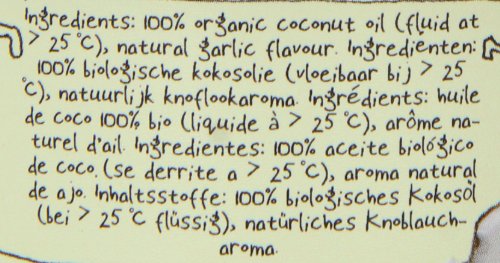 Ingredients: 100% organic coconut oil (fluid at
> 25 °C), natural garlic flavour. Ingrediënten:
100% biologische kokosolie (vloeibaar bij > 25
°C), natuurlijk knoflookaroma. Ingrédients: huile
de coco 100% bio (liquide à > 25 °C), arôme na-
turel d'ail. Ingredientes: 100% aceite biológico
de coco. (se derrite a > 25 °C), aroma natural
de ajo. Inhaltsstoffe: 100% biologisches Kokosöl
(bei > 25 °C flüssig), natürliches Knoblauch-
aroma.